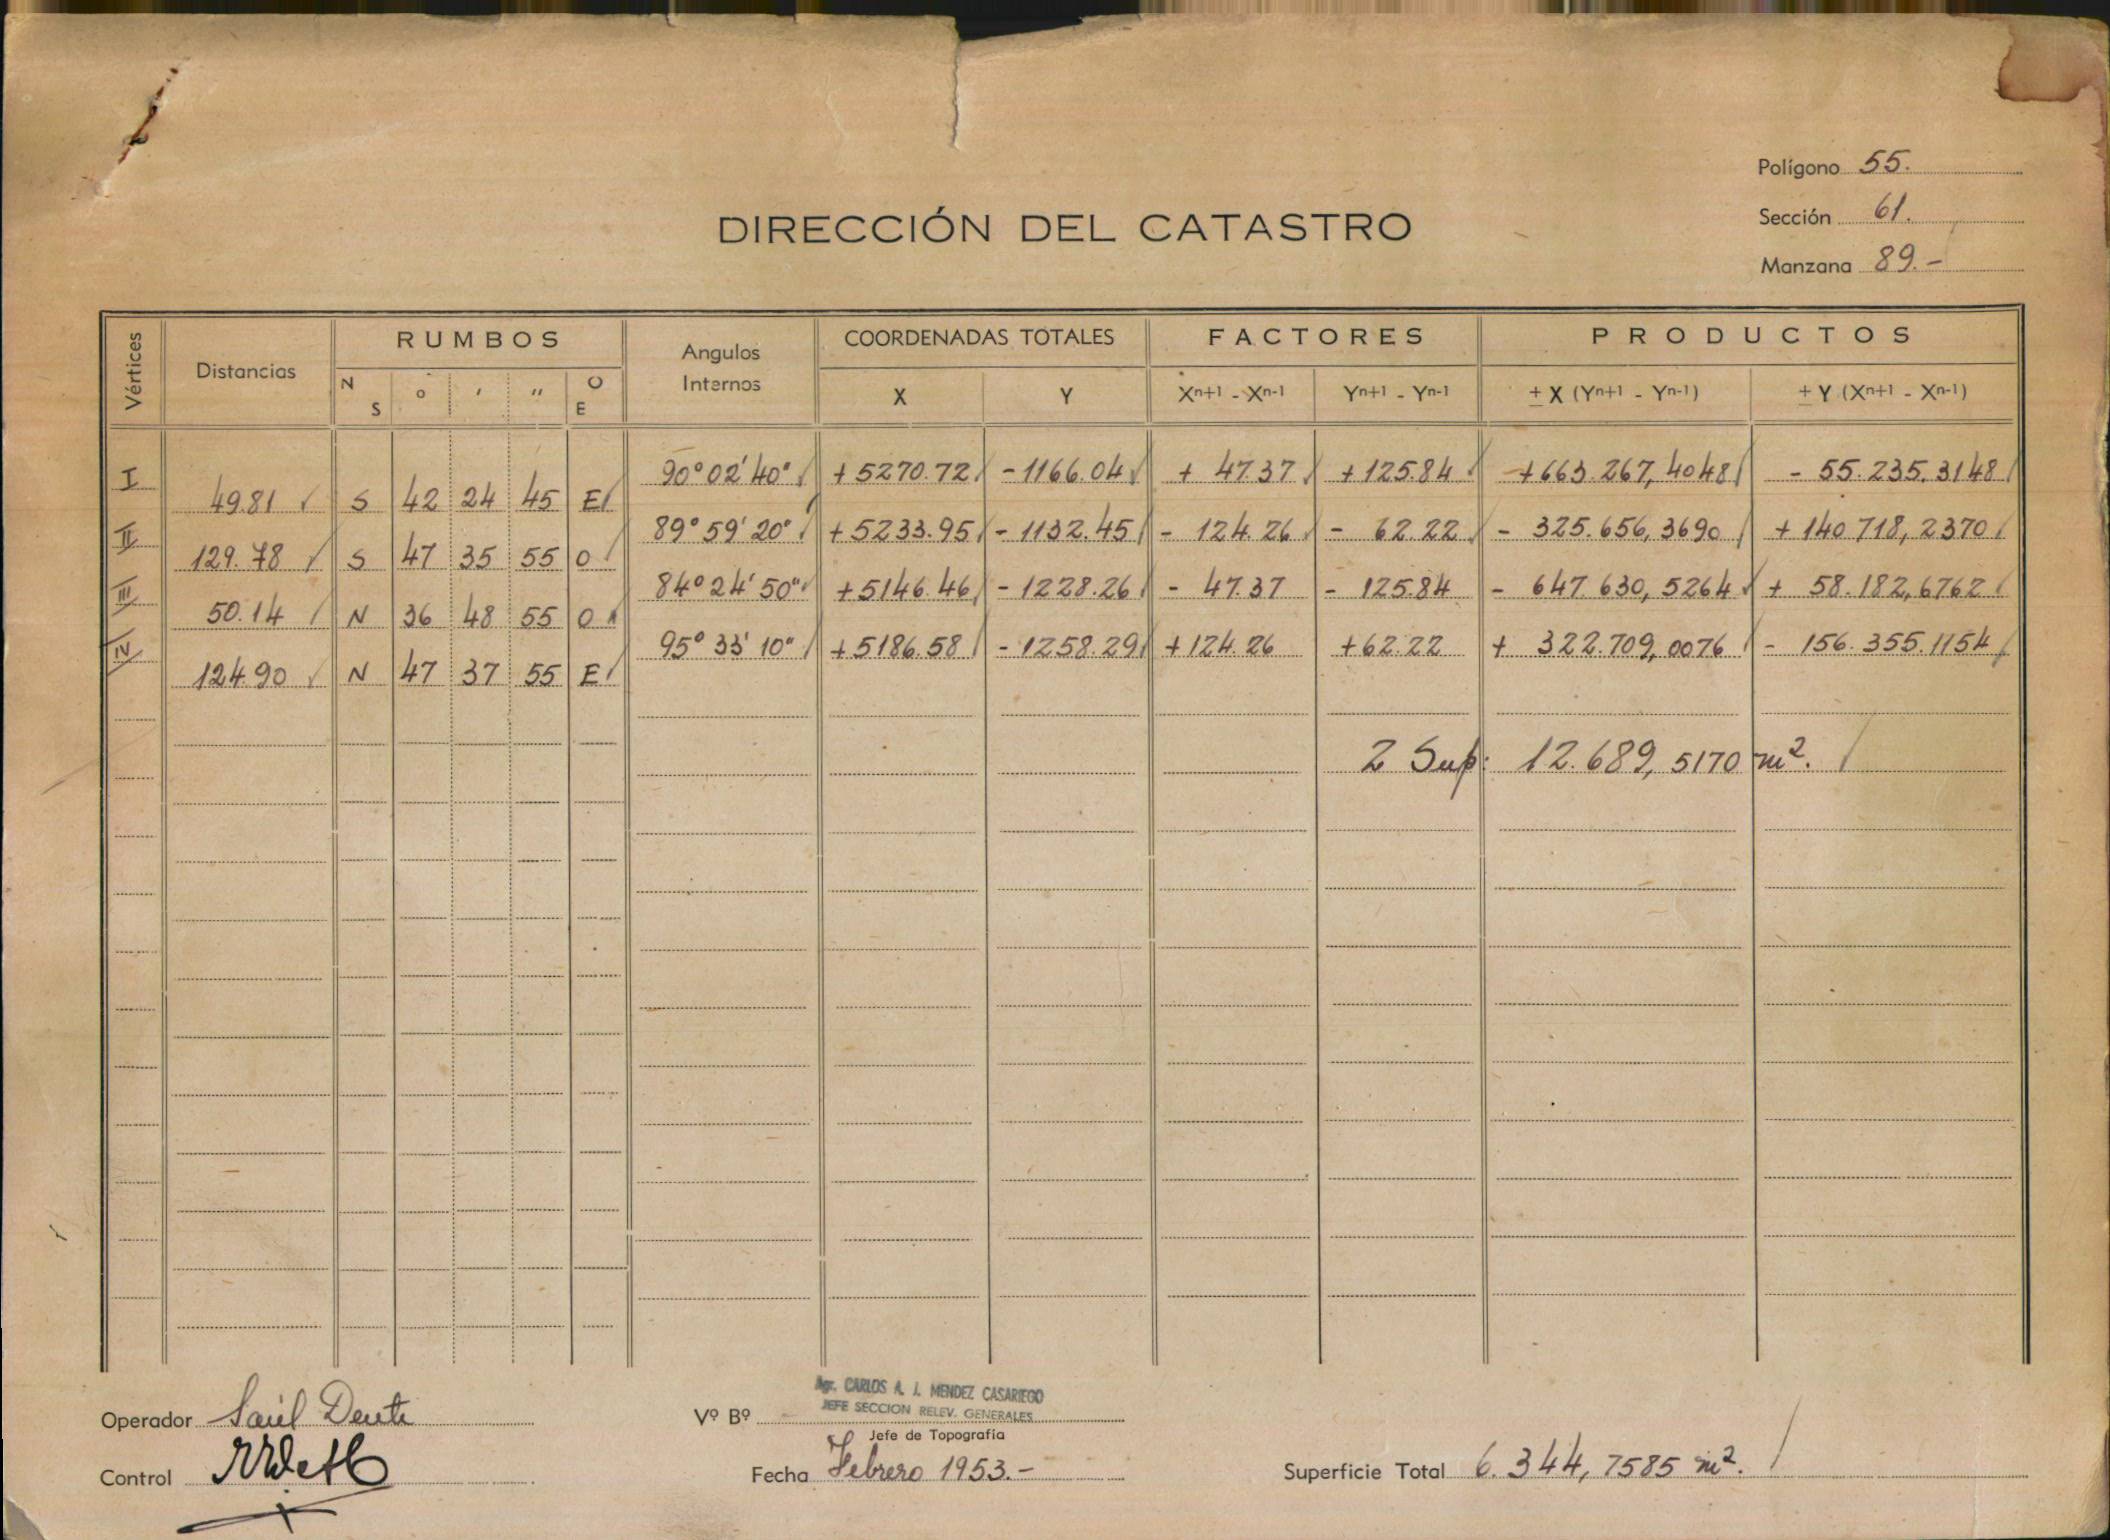 Polígono 55.
Sección 61.
Manzana 89.-
DIRECCIÓN DEL CATASTRO
Vértices Distancias RUMBOS Angulos Internos COORDENADAS TOTALES FACTORES PRODUCTOS
N S ° ' " O E X Y Xn+1 - Xn-1 Yn+1 - Yn-1 ± X (Yn+1 - Yn-1) ± Y (Xn+1 - Xn-1)
I 90° 02' 40" +5270.72 -1166.04 + 47.37 +125.84 +663.267,4048 - 55.235.3148
49.81 S 42 24 45 E
II 89° 59' 20" +5233.95 -1132.45 - 124.26 - 62.22 - 325.656,3690 +140.718,2370
129.78 S 47 35 55 O
III 84° 24' 50" +5146.46 -1228.26 - 47.37 - 125.84 - 647.630,5264 + 58.182,6762
50.14 N 36 48 55 O
IV 95° 33' 10" +5186.58 -1258.29 +124.26 +62.22 + 322.709,0076 - 156.355.1154
124.90 N 47 37 55 E
2 Sup: 12.689,5170 m².
Operador Saúl Dente
Vº Bº Agr. CARLOS A. J. MENDEZ CASARIEGO
JEFE SECCION RELEV. GENERALES
Jefe de Topografía
Control
Fecha Febrero 1953.-
Superficie Total 6.344,7585 m².